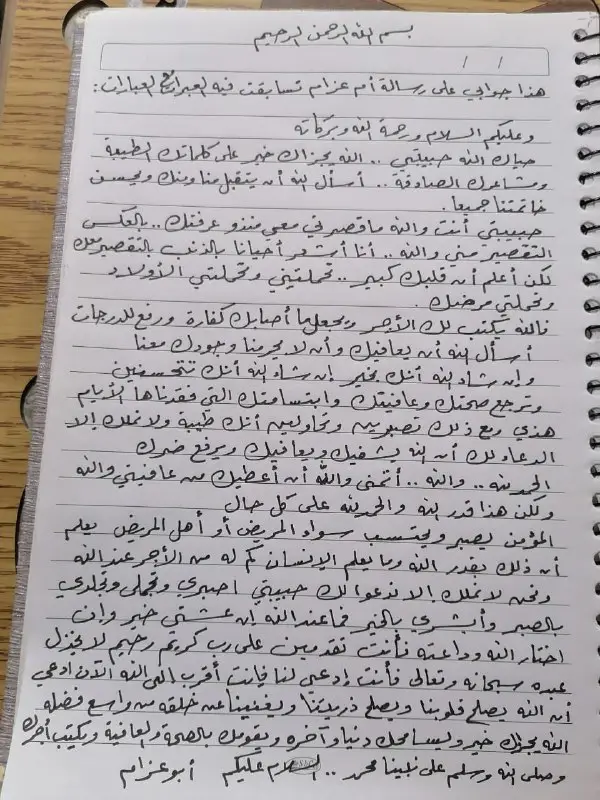 بسم الله الرحمن الرحيم
/ /
هذا جوابي على رسالة أم عزام تسابقت فيه العبرات العبارات :
وعليكم السلام ورحمة الله وبركاته
حياك الله حبيبتي .. الله يجزاك خير على كلماتك الطيبة
ومشاعرك الصادقة .. أسأل الله أن يتقبل منا ومنك ويحسن
خاتمتنا جميعا .
حبيبتي أنت والله ما قصرتي معي منذو عرفتك .. بالعكس
التقصير مني والله .. أنا أشعر أحيانا بالذنب بالتقصير معك
لكن أعلم أن قلبك كبير .. تحملتيني وتحملتي الأولاد
وتحملتي مرضك .
فالله يكتب لك الأجر ويجعل ما أصابك كفارة ورفع للدرجات
أسأل الله أن يعافيك وأن لا يحرمنا وجودك معنا
وإن شاء الله أنك بخير إن شاء الله أنك تتحسنين
وترجع صحتك وعافيتك وابتسامتك التي فقدناها الأيام
هذي ومع ذلك تصبرين وتحاولين أنك طيبة ولا نملك إلا
الدعاء لك أن الله يشفيك ويعافيك ويرفع ضرك
الحمد لله .. والله .. أتمنى والله أن أعطيك من عافيتي والله
ولكن هذا قدر الله والحمد لله على كل حال
المؤمن يصبر ويحتسب سواء المريض أو أهل المريض يعلم
أن ذلك بقدر الله وما يعلم الإنسان كم له من الأجر عند الله
ونحن لا نملك إلا ندعوا لك حبيبتي اصبري وتحملي وتجلدي
بالصبر وأبشري بالخير فما عند الله إن عشتي خير وإن
اختار الله وداعته فأنت تقدمين على رب كريم رحيم لا يخذل
عبده سبحانه وتعالى فأنت إدعي لنا فإنت أقرب إلى الله الآن ادعي
أن الله يصلح قلوبنا ويصلح ذريتنا ويغنينا عن خلقه من واسع فضله
الله يجزاك خير ويسامحك دنيا وآخره ويقومك بالصحة والعافية ويكتب أجرك
وصلى الله وسلم على نبينا محمد .. السلام عليكم أبو عزام